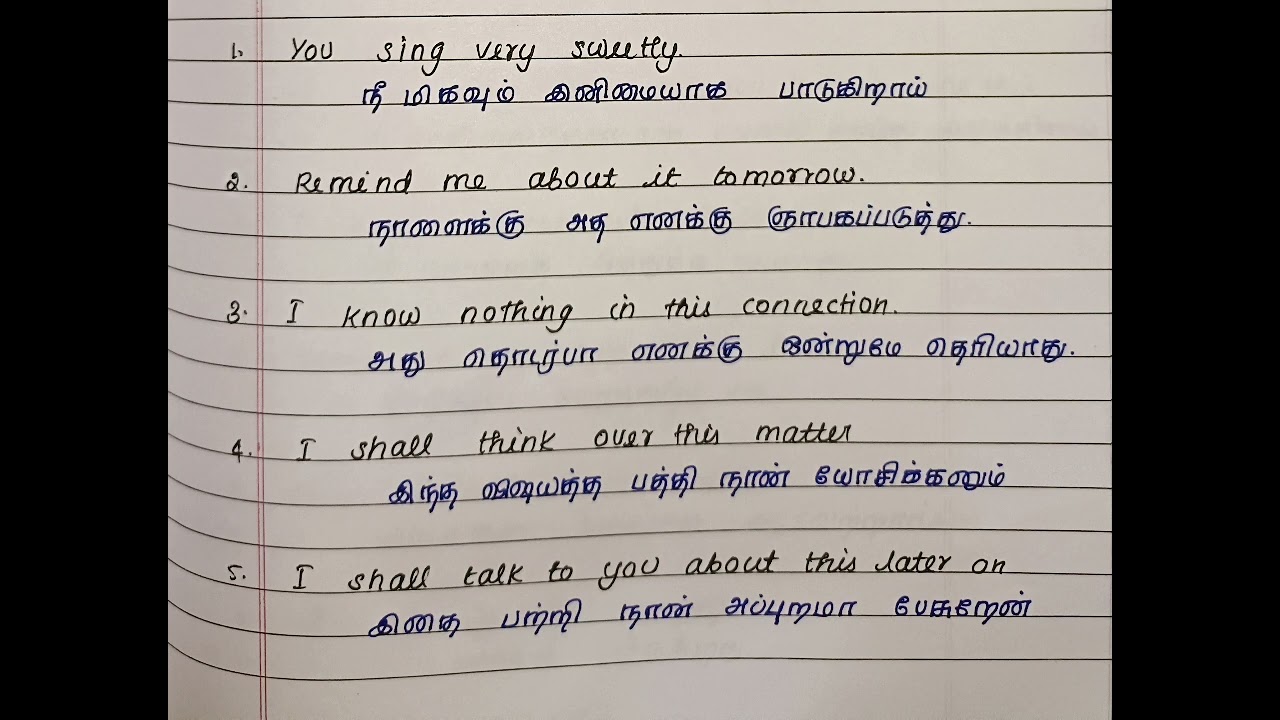 1. You sing very sweetly.
நீ மிகவும் இனிமையாக பாடுகிறாய்
2. Remind me about it tomorrow.
நாளைக்கு அத எனக்கு ஞாபகப்படுத்து.
3. I know nothing in this connection.
அது தொடர்பா எனக்கு ஒன்றுமே தெரியாது.
4. I shall think over this matter
இந்த விஷயத்த பத்தி நான் யோசிக்கணும்
5. I shall talk to you about this later on
இதை பற்றி நான் அப்புறமா பேசுறேன்